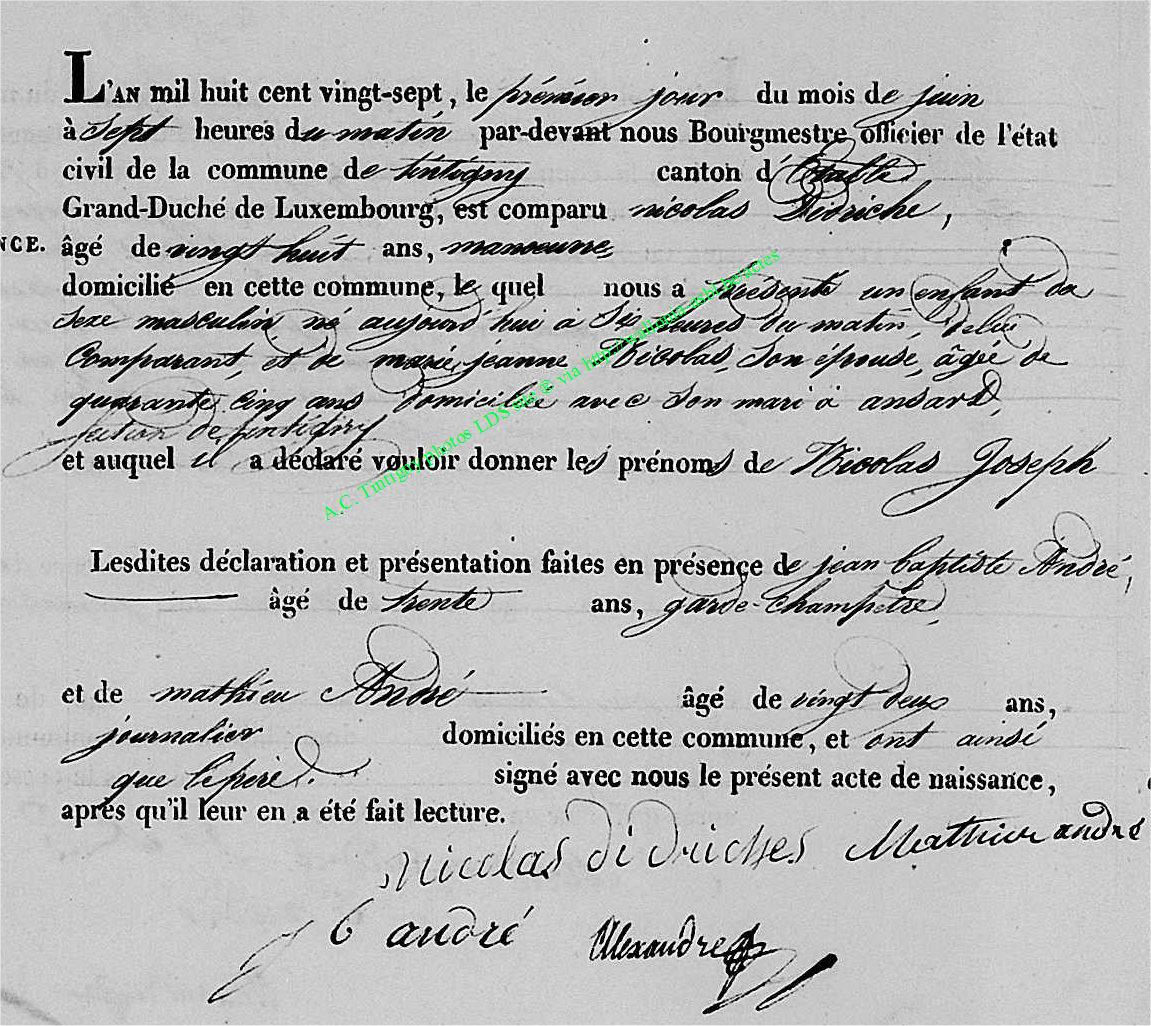 L'AN mil huit cent vingt-sept, le prémiér jour du mois de juin
à Sept heures du matin par-devant nous Bourgmestre officier de l'état
civil de la commune de tintigny canton d'Etalle
Grand-Duché de Luxembourg, est comparu nicolas Didriche,
NCE. âgé de vingt huit ans, manoeuvre,
domicilié en cette commune, le quel nous a présenté un enfant du
Sexe masculin né aujourd'hui à Six heures du matin, de lui
Comparant, et de marie jeanne Nicolas, Son épouse, âgée de
quarante cinq ans domiciliée avec Son mari à ansart,
section de tintigny
et auquel il a déclaré vouloir donner les prénoms de Nicolas Joseph
A.C. Tintigny Photos LDS via http://
Lesdites déclaration et présentation faites en présence de jean baptiste André,
âgé de trente ans, garde-Champêtre,
et de mathieu André âgé de vingt deux ans,
journalier domiciliés en cette commune, et ont ainsi
que le père signé avec nous le présent acte de naissance,
après qu'il leur en a été fait lecture.
Nicolas didriches Mathieu andré
J b andré Alexandre